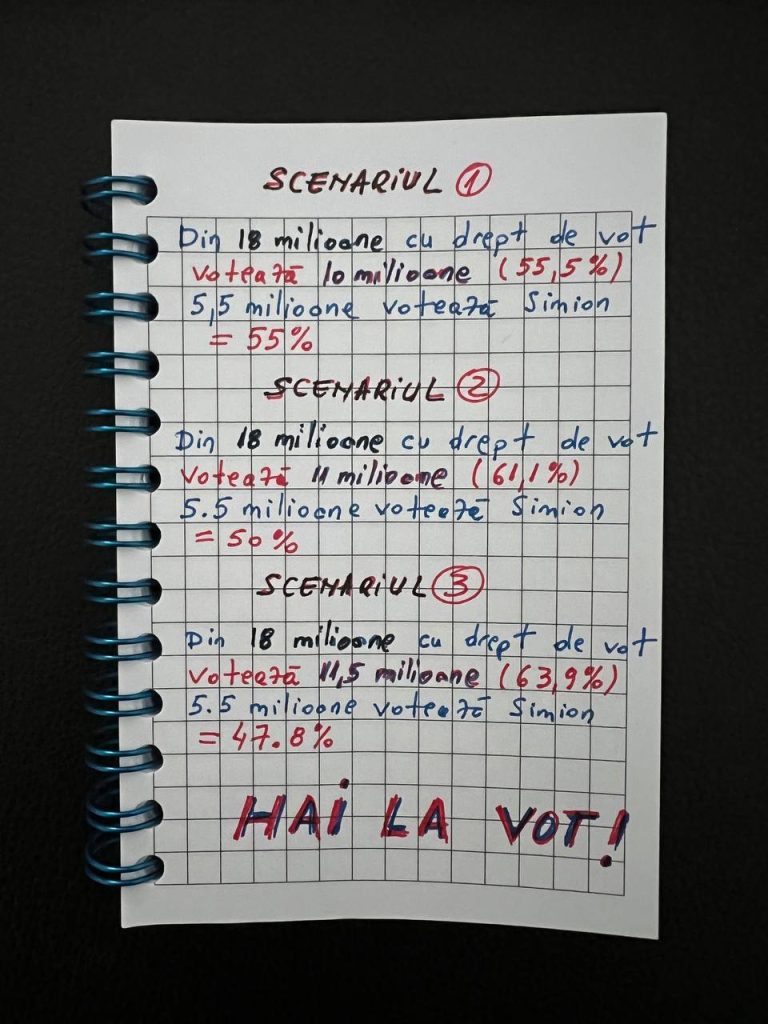 SCENARIUL 1
Din 18 milioane cu drept de vot
votează 10 milioane (55,5%)
5,5 milioane votează Simion
= 55%
SCENARIUL 2
Din 18 milioane cu drept de vot
votează 11 milioane (61,1%)
5.5 milioane votează Simion
= 50%
SCENARIUL 3
Din 18 milioane cu drept de vot
votează 11,5 milioane (63,9%)
5.5 milioane votează Simion
= 47.8%
HAI LA VOT!